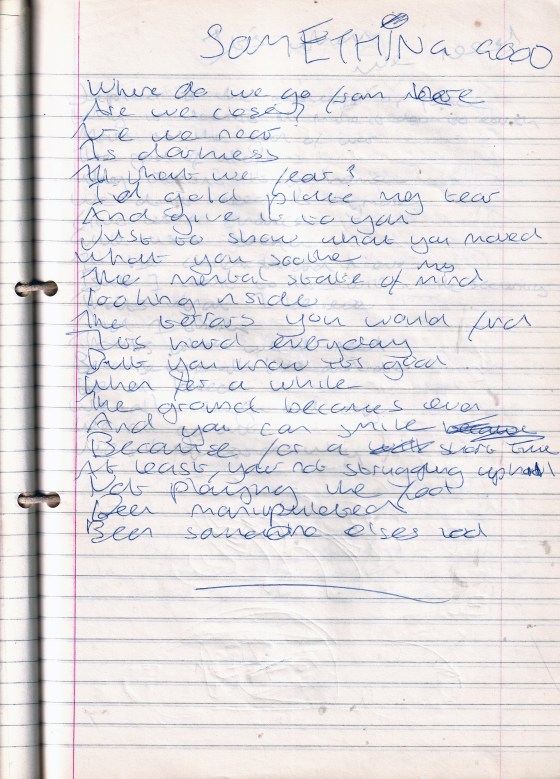 SOMETHING GOOD
Where do we go from here
Are we close?
Are we near
Is darness
what we fear?
I'd gold plate my tear
And give it to you
Just to show what you moved
What you soothe
The mental state of my mind
looking nside
The terrors you would find
It's hard everyday
But you know it's good
When for a while
The ground becomes even
And you can smile
Because for a short time
At least your not struggling uphill
Not playing the fool
Been manipulated
Been someone elses